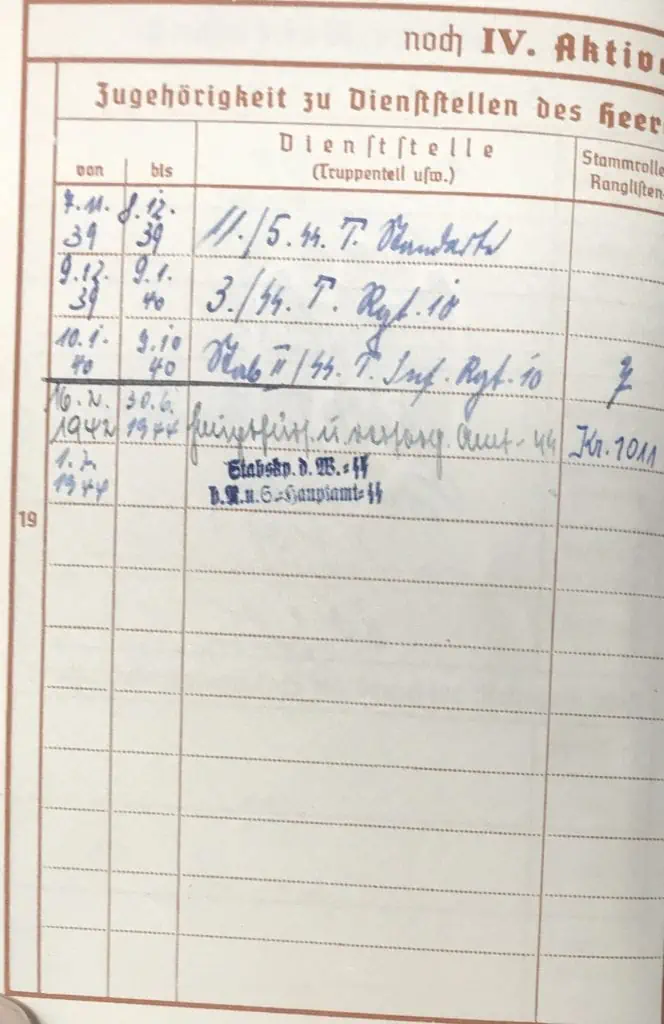 noch IV. Aktive
Zugehörigkeit zu Dienststellen des Heer
von bis Dienststelle (Truppenteil usw.) Stammrolle Ranglisten-
7.11. 39 8.12. 39 11./5. SS. T. Standarte
9.12. 39 9.1. 40 3./SS. T. Rgt. 10
10.1. 40 9.10 40 Stab II/SS. T. Inf. Rgt. 10
16.2. 1942 30.6. 1944 u. Amt-SS Kr. 1011
1.7. 1944 Stabskp. d. W.=SS
b. R. u. S.=Hauptamt=SS
19